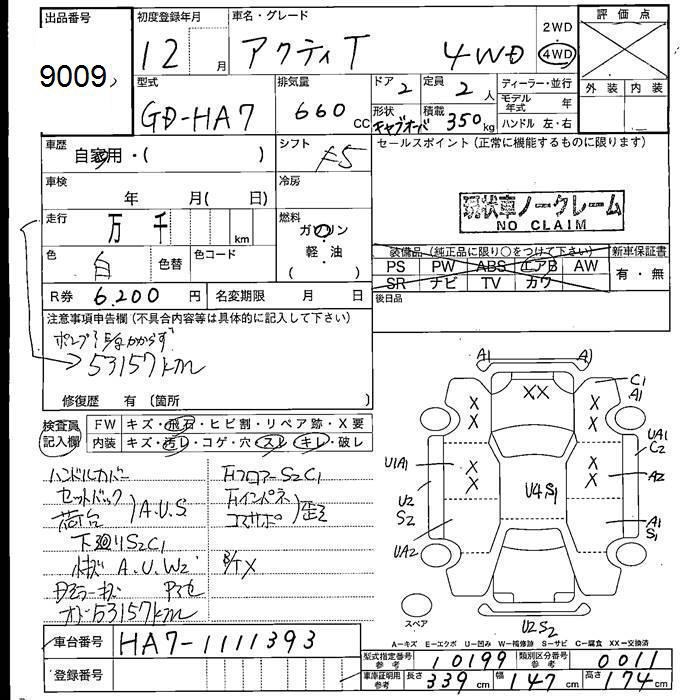 出品番号 初度登録年月 車名・グレード 2WD 評価点
9009 12月 アクティT 4WD ・ 4WD
型式 排気量 ドア 2 定員 2人 ディーラー・並行 外装 内装
GD-HA7 660 CC 形状 キャブオーバ 積載 350kg モデル年式 年
ハンドル 左・右
車歴 自家用・( ) シフト F5 セールスポイント (正常に機能するものに限ります)
車検 年 月( 日) 冷房
現状車ノークレーム
NO CLAIM
走行 万 千 km 燃料 ガソリン
軽・油
( )
色 白 色替 色コード
装備品 (純正品に限り○をつけて下さい) 新車保証書
PS PW ABS エアB AW 有・無
SR ナビ TV カワ
R券 6,200 円 名変期限 月 日 後日品
注意事項申告欄 (不具合内容等は具体的に記入して下さい)
53157km
修復歴 有 (箇所 )
検査員記入欄 FW キズ・飛石・ヒビ割・リペア跡・X要
内装 キズ・汚レ・コゲ・穴・スレ・キレ・破レ
ハンドルカバー FフロアーS2C1
セットバック Fインパネ
荷台 A.U.S コアサポ 歪
下廻りS2C1
A.U.W2 B/TX
53157km
A1 A1
XX C1
A1
X X
X X
UA1
C2
U1A1 X X A2
X X
U2 U4S1
S2
A1
S1
UA2
スペア U2S2
A=キズ E=エクボ U=凹み W=補修跡 S=サビ C=腐食 XX=交換済
車台番号 HA7-1111393
型式指定番号 参考 10199 類別区分番号 参考 0011
登録番号 車庫証明用 参考 長さ 339cm 幅 147cm 高さ 174cm